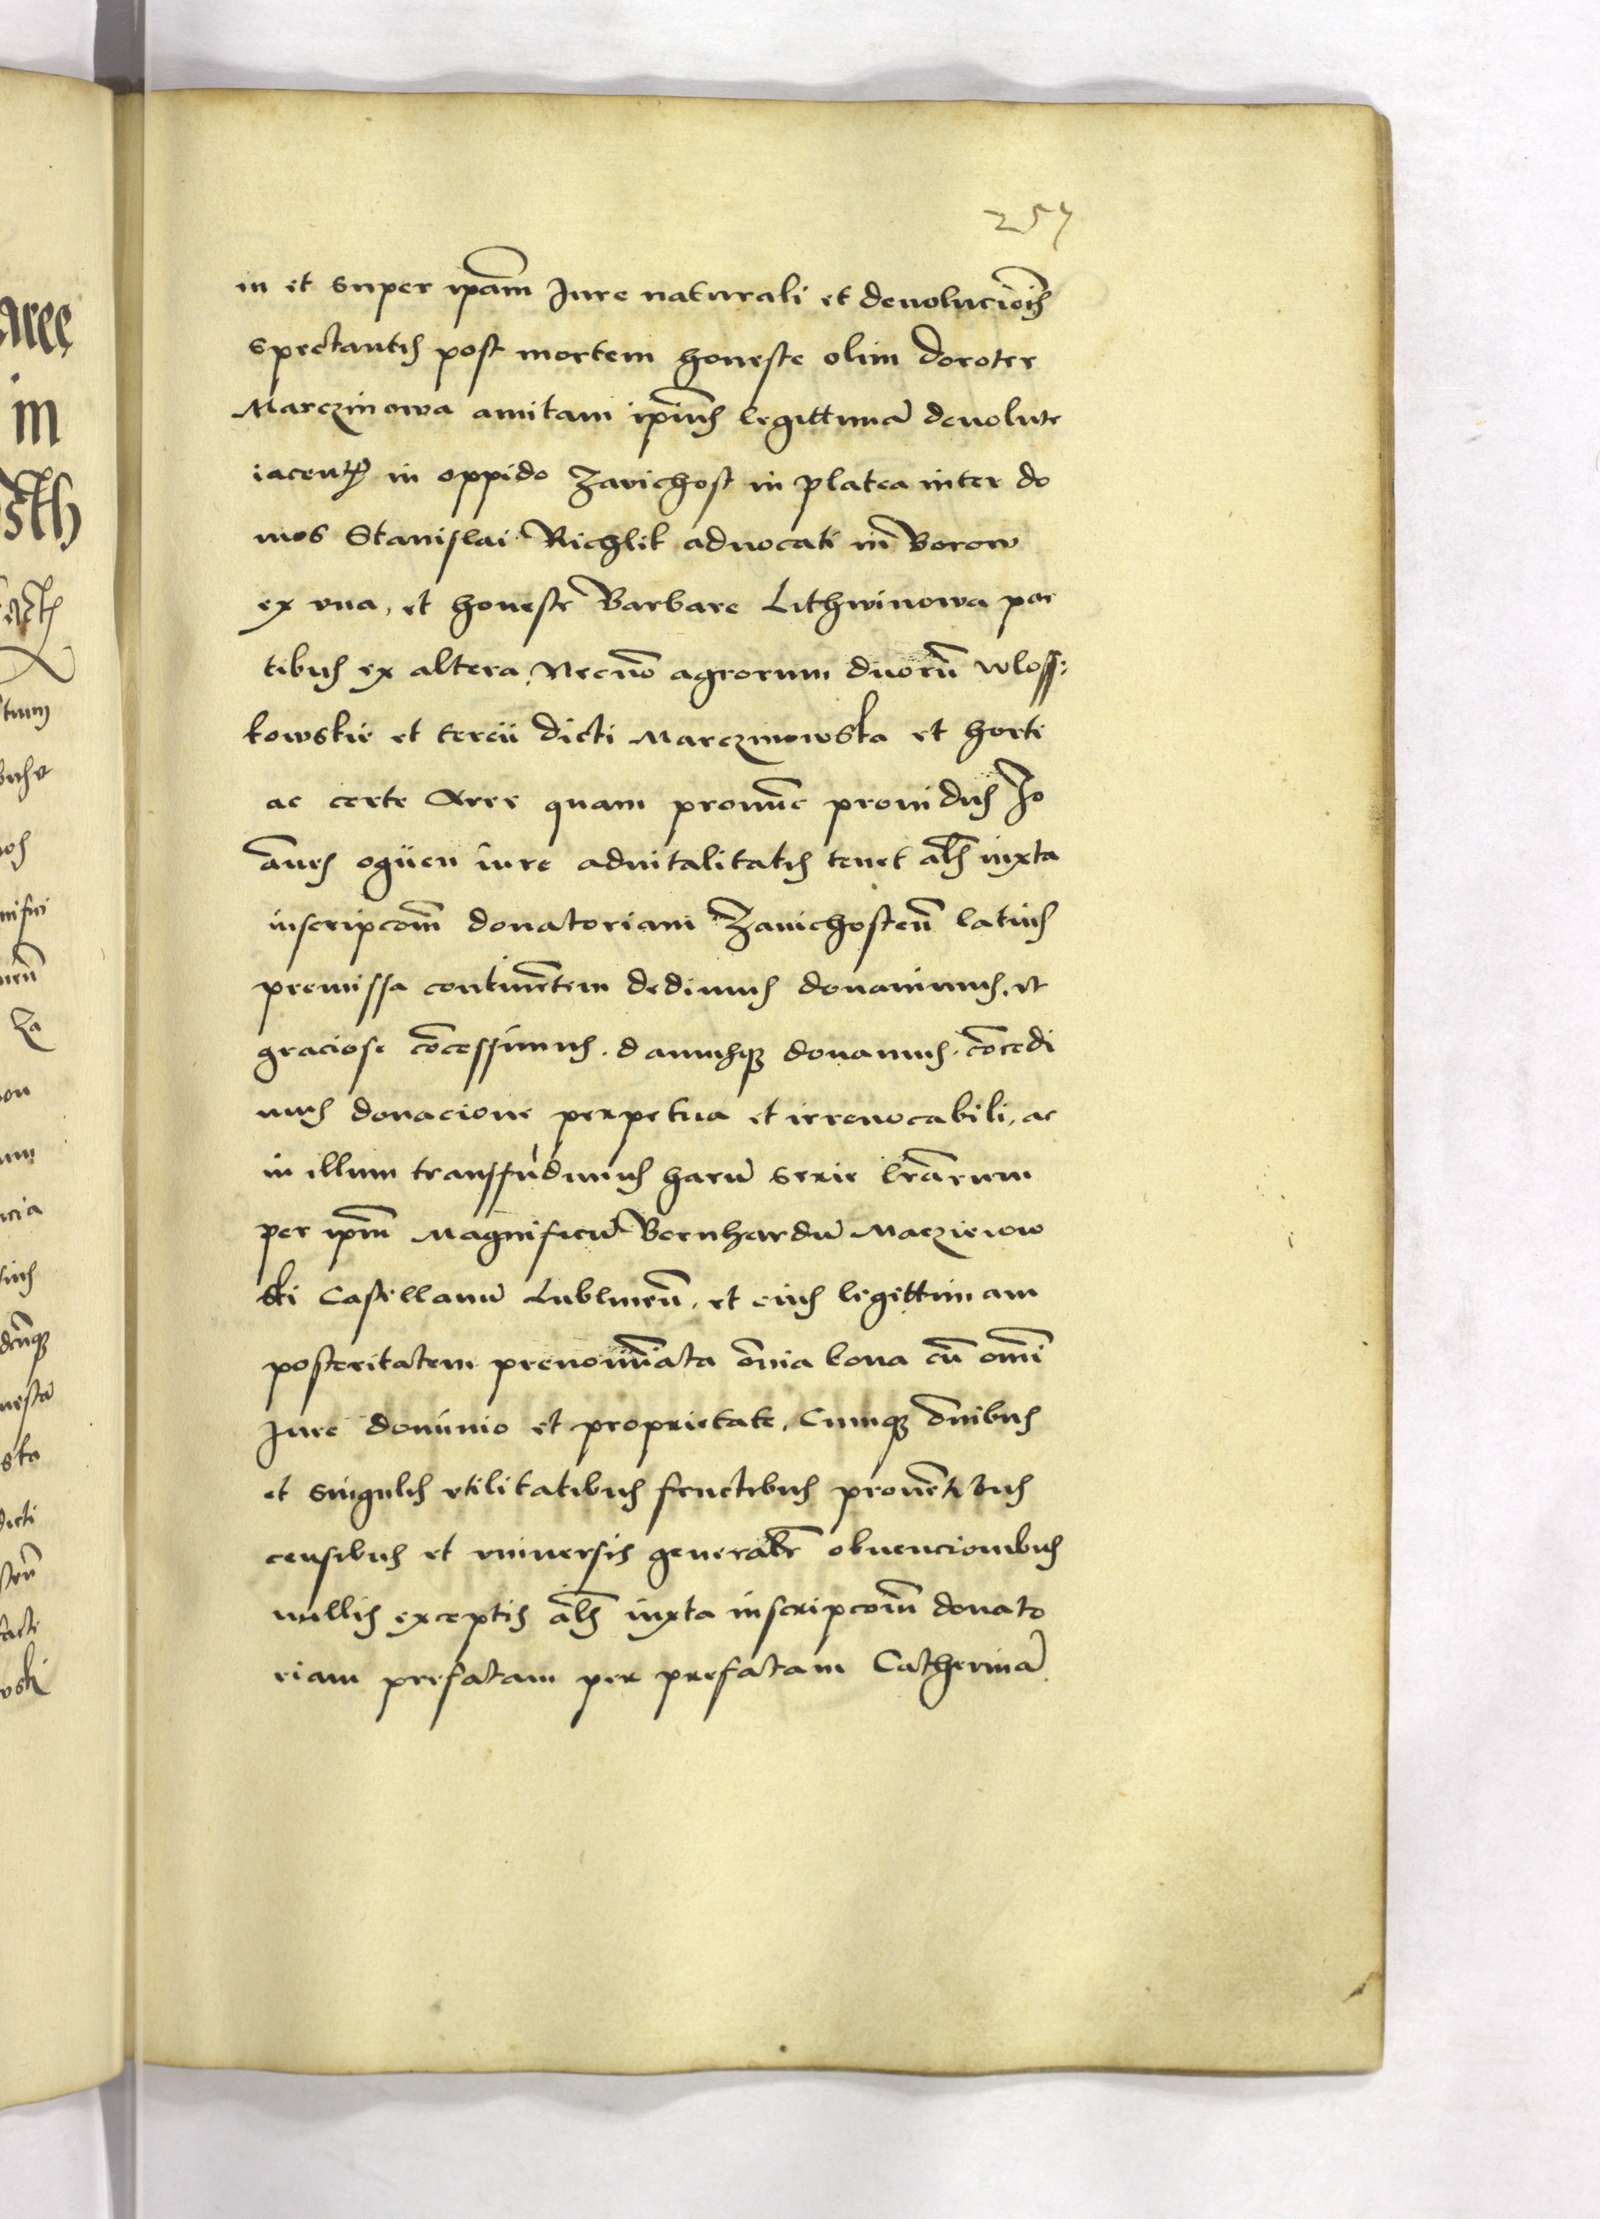 257
in et super ip̄am Jure naturali et deuolucio͞is
spectantis post mortem honeste olim Dorotee
Marczinowa amitam ip̄ius legittimā deuolute
iacent in oppido Zavichost in platea inter do
mos Stanislai Richlik aduocati in Borow
ex vna, et honeste Barbare Lithwinowa par
tibus ex altera, Necno͞ agrorum duorū Wloss:
kowskie et tercii dicti Marczinowska et horti
ac certe Aree quam pronūc prouidus Jo
ānes ogüen iure aduitalitatis tenet al̄s iuxta
inscripcōm donatoriam Zauichosteñ latius
premissa continētem dedimus donauimus, et
graciose cōcessimus. damusq; donamus. cōcedi
mus donacione perpetua et irreuocabili, ac
in illum transfūdimus harū serie lr̄arum
per ip̄m Magnificū Bernhardū Maczieiow
ski Castellanū Lublineñ. et eius legittimam
posteritatem prenoīata ōnia bona cū om̄i
Jure dominio et proprietate, Cumq; ōnibus
et singulis vtilitatibus fructibus prouētibus
censibus et vniuersis generalr̄ obuencionibus
nullis exceptis al̄s iuxta inscripcōm donato
riam prefatam per prefatam Catherinā
aree
in